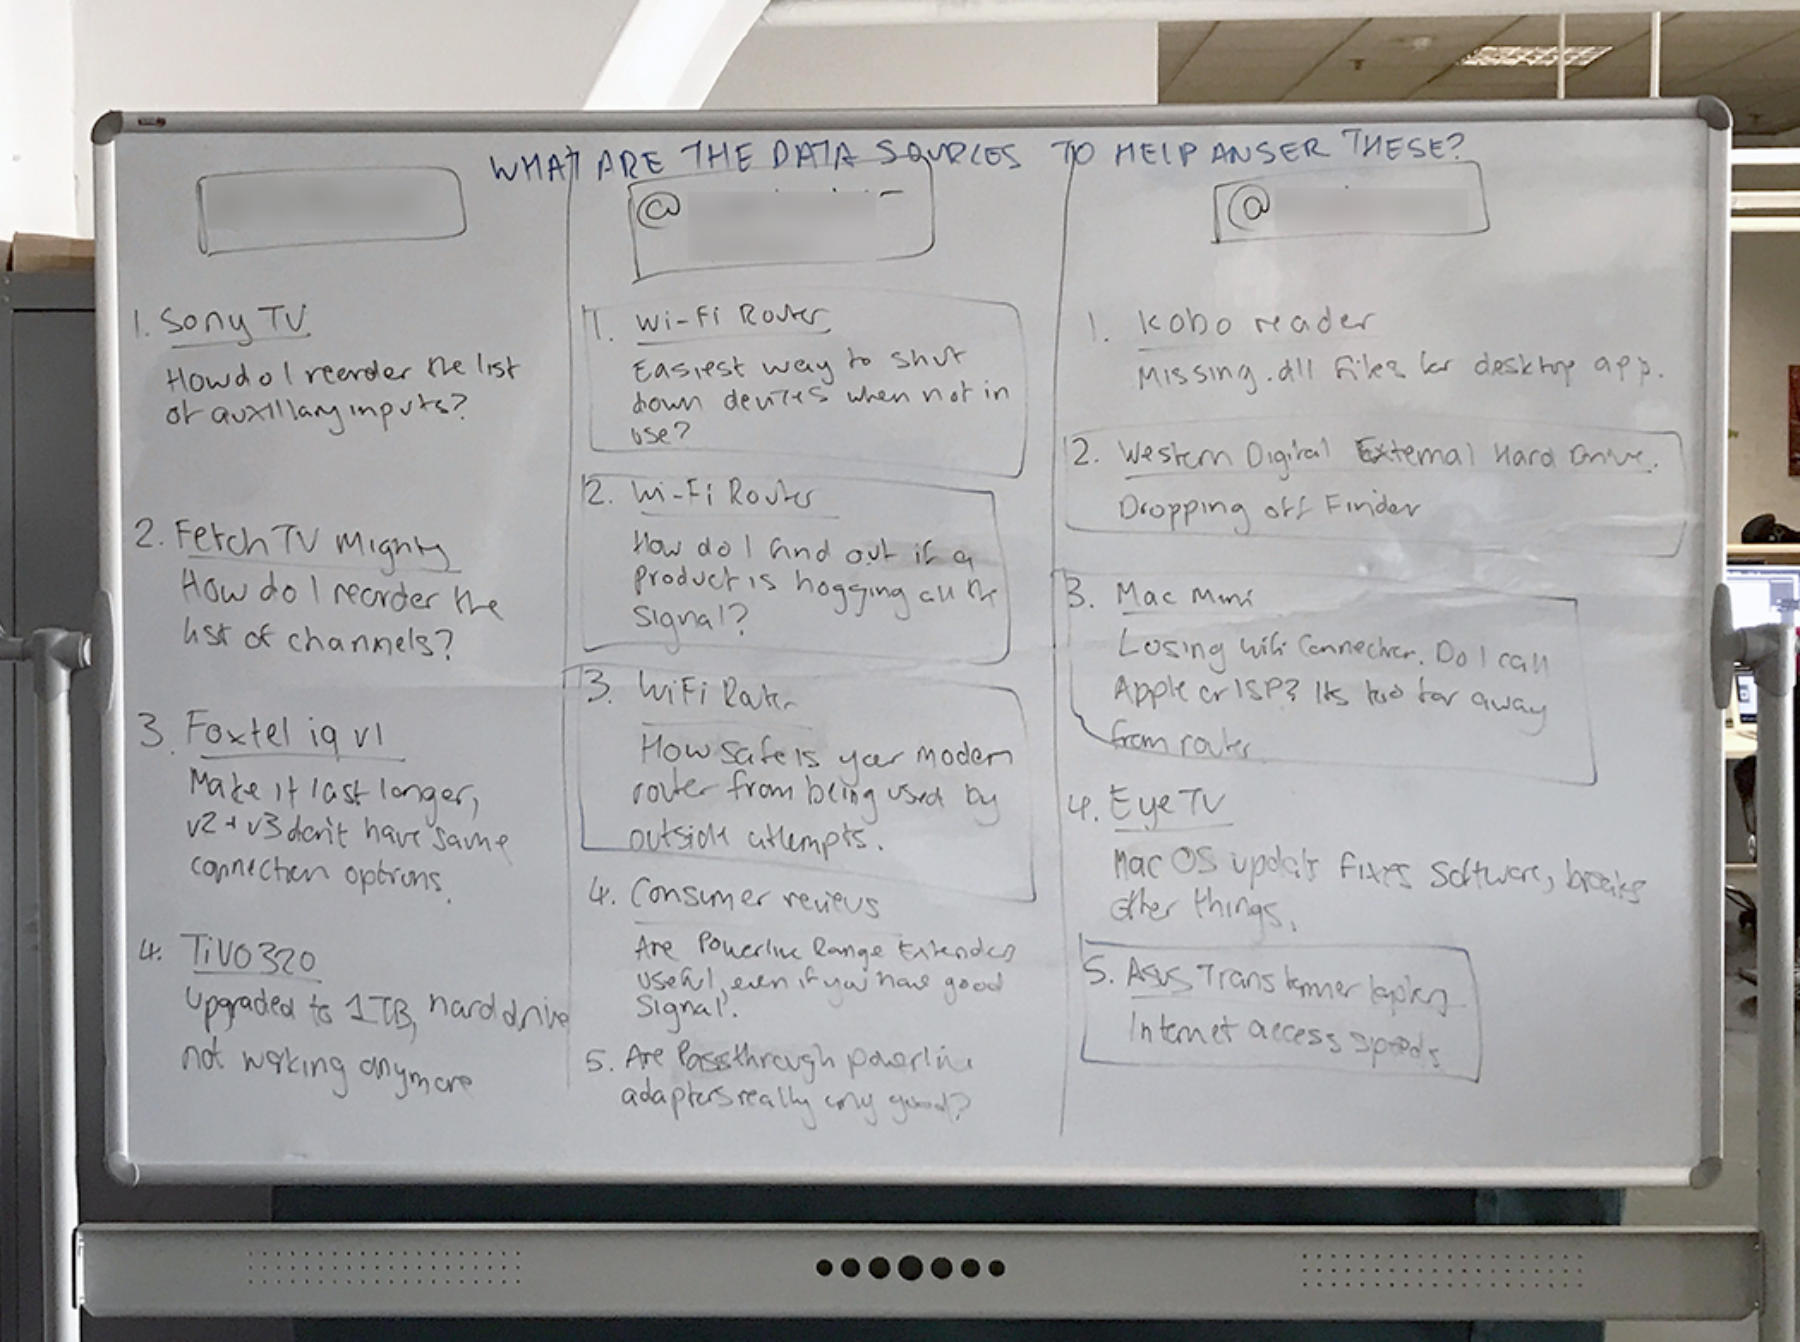 WHAT ARE THE DATA SOURCES TO HELP ANSER THESE?
1. Sony TV
How do I reorder the list
of auxillary inputs?
2. Fetch TV Mighty
How do I reorder the
list of channels?
3. Foxtel iq v1
Make it last longer,
v2 + v3 don't have same
connection options.
4. TiVO 320
Upgraded to 1TB, hard drive
not working anymore
@
1. Wi-Fi Router
Easiest way to shut
down devices when not in
use?
2. Wi-Fi Router
How do I find out if a
product is hogging all the
signal?
3. WiFi Router
How safe is your modem
router from being used by
outside attempts.
4. Consumer reviews
Are Powerline Range Extenders
useful, even if you have good
signal?
5. Are Passthrough powerline
adapters really any good?
@
1. Kobo reader
Missing .dll files for desktop app.
2. Western Digital External Hard Drive.
Dropping off Finder
3. Mac Mini
Losing wifi connection. Do I call
Apple or ISP? Its too far away
from router
4. Eye TV
Mac OS update fixes software, breaks
other things.
5. Asus Transformer laptop
Internet access speeds